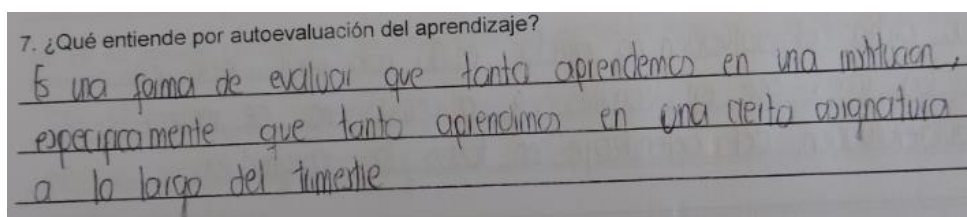 7. ¿Qué entiende por autoevaluación del aprendizaje?
Es una forma de evaluar que tanto aprendemos en una institucion,
especificamente que tanto aprendimos en una cierta asignatura
a lo largo del trimestre